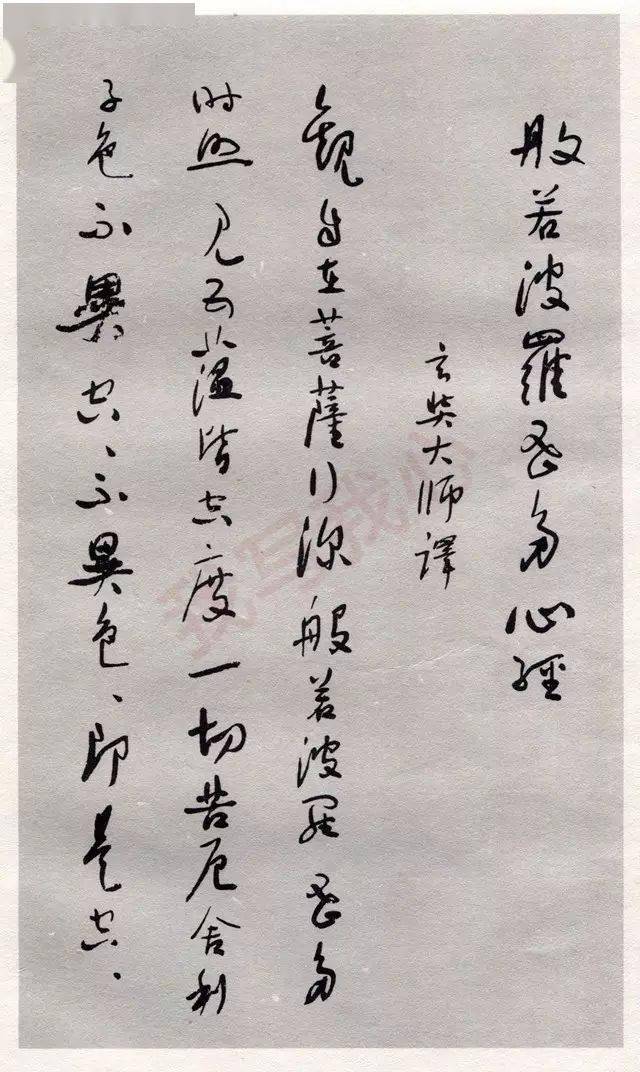 般若波羅蜜多心經
玄奘大师譯
觀自在菩薩行深般若波羅蜜多
时照见五蘊皆空度一切苦厄舍利
子色不異空、不異色、即是空、
我写我心